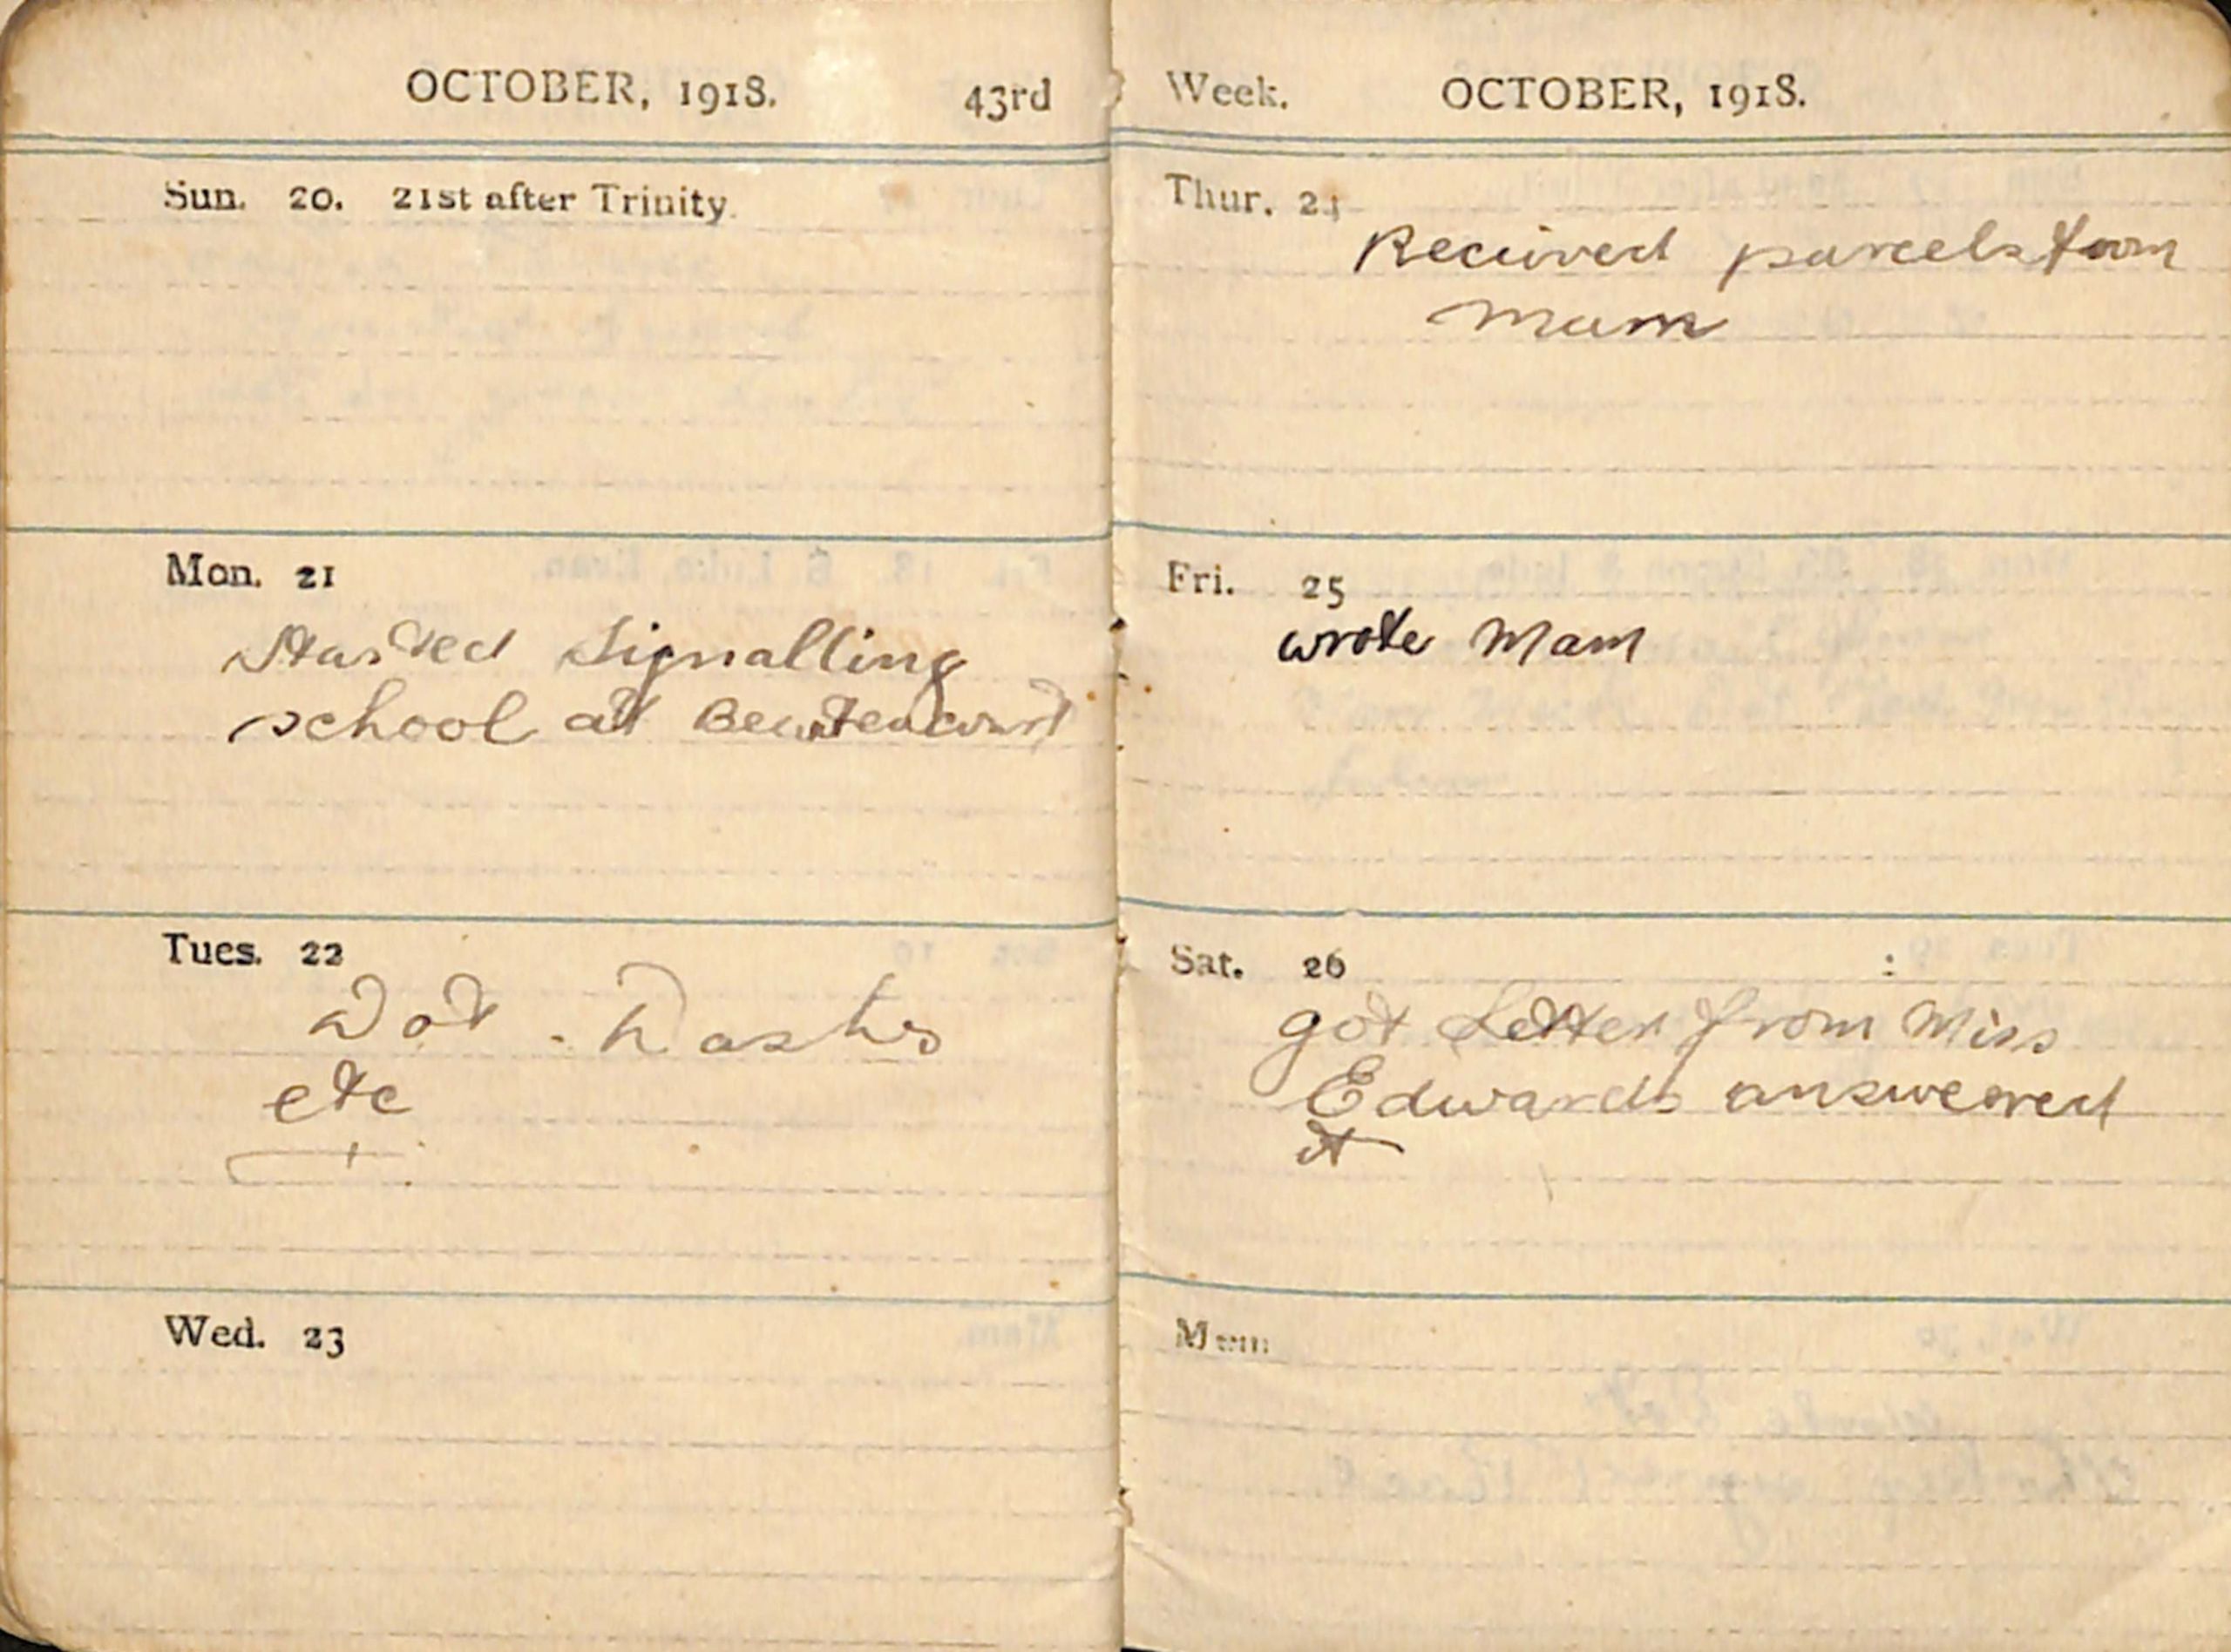 OCTOBER, 1918. 43rd
Sun. 20. 21st after Trinity.
Mon. 21
Started Signalling
school at
Tues. 22
Dot. Dashes
etc
Wed. 23
Week. OCTOBER, 1918.
Thur. 24
Recieved parcels from
Mam
Fri. 25
wrote Mam
Sat. 26
got Letter from Miss
Edwards answered
it
Mem